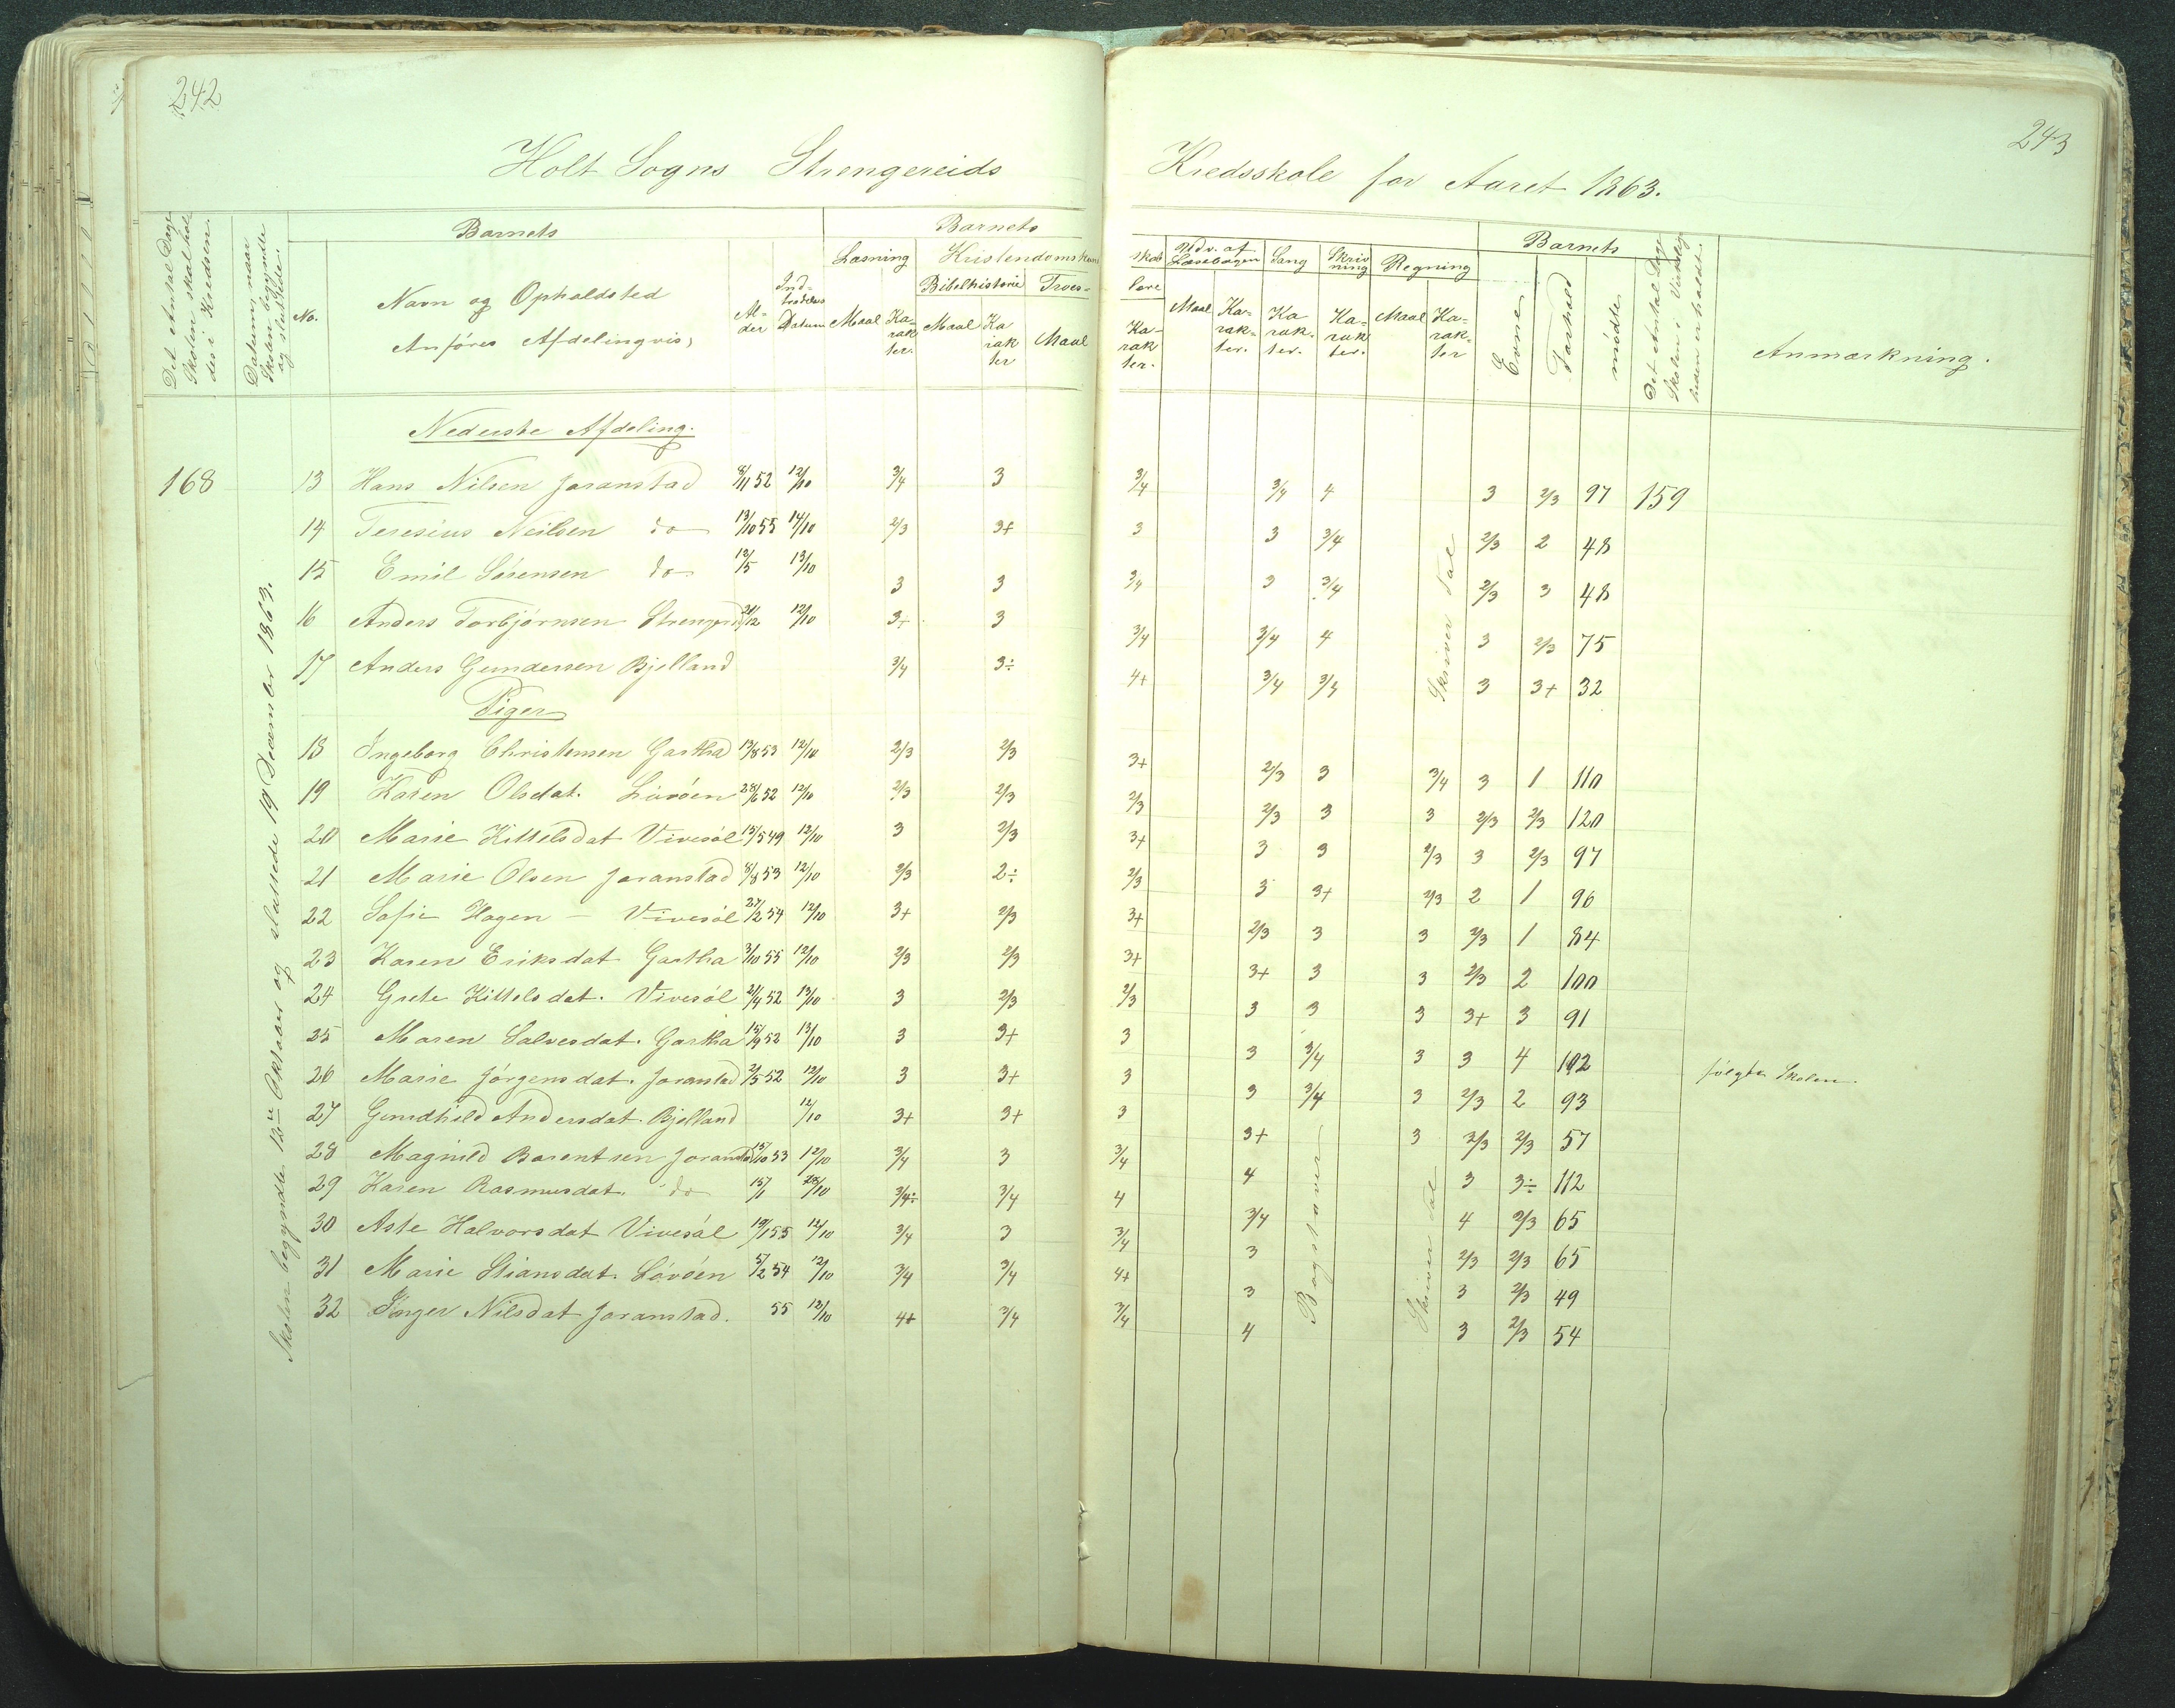 242
243
Holt Sogns Strengereids Kredsskole for Aaret 1863.
Det Antal Dage Skolen skal holdes i Kredsen.
Datum, naar Skolen begyndte og sluttede.
Barnets
No.
Navn og Opholdsted
Anføres Afdelingvis,
Alder
Indtrædelses Datum
Barnets
Læsning
Maal
Karakter.
Kristendomskundskab
Bibelhistorie
Maal
Karakter
Troeslære
Maal
Karakter.
Udv. af Læsebogen
Maal
Karakter.
Sang
Karakter.
Skrivning
Karakter.
Regning
Maal
Karakter
Barnets
Evne
Forhold
mødte
Det Antal Dage Skolen i Virkeligheden er holdt.
Anmærkning.
Nederste Afdeling.
Skolen begyndte 12te Oktober og sluttede 19 December 1863.
168 13 Hans Nilsen Joranstad 8/11 52 12/10 3/4 3 3/4 3/4 4 3 2/3 97 159
14 Teresius Neilsen do 13/10 55 14/10 2/3 3+ 3 3 3/4 2/3 2 48
15 Emil Sørensen do 12/5 13/10 3 3 3/4 3 3/4 2/3 3 48
16 Anders Torbjørnsen 12/10 3+ 3 3/4 3/4 4 3 2/3 75
17 Anders Gundersen Bjelland 3/4 3÷ 4+ 3/4 3/4 3 3+ 32
Skriver Tal
Piger
18 Ingeborg Christensen Gartha 13/8 53 12/10 2/3 2/3 3+ 2/3 3 3/4 3 1 110
19 Karen Olsdat. Løvøen 28/6 52 12/10 2/3 2/3 2/3 2/3 3 3 2/3 2/3 120
20 Marie Kittelsdat Vivesøl 15/5 49 12/10 3 2/3 3+ 3 3 2/3 3 2/3 97
21 Marie Olsen Joranstad 8/8 53 12/10 2/3 2÷ 2/3 3 3+ 2/3 2 1 96
22 Sofie Hagen - Vivesøl 27/2 54 12/10 3+ 2/3 3+ 2/3 3 3 2/3 1 84
23 Karen Eriksdat Gartha 3/10 55 12/10 2/3 2/3 3+ 3+ 3 3 2/3 2 100
24 Grete Kittelsdat. Vivesøl 2/4 52 13/10 3 2/3 2/3 3 3 3 3+ 3 91
25 Maren Salvesdat. Gartha 15/9 52 13/10 3 3+ 3 3 3/4 3 3 4 102 følgte Skolen.
26 Marie Jørgensdat. Joranstad 2/5 52 12/10 3 3+ 3 3 3/4 3 2/3 2 93
27 Gundhild Andersdat. Bjelland 12/10 3+ 3+ 3 3+ 3 2/3 2/3 57
28 Magnild Barentsen Joranstad 15/10 53 12/10 3/4 3 3/4 4 3 3÷ 112
29 Karen Rasmusdat. do 15/1 28/10 3/4÷ 3/4 4 3/4 4 2/3 65
30 Aste Halvorsdat Vivesøl 19/1 55 12/10 3/4 3 3/4 3 2/3 2/3 65
31 Marie Stiansdat. Løvøen 5/2 54 12/10 3/4 3/4 4+ 3 3 2/3 49
32 Inger Nilsdat Joranstad. 55 12/10 4+ 3/4 3/4 4 3 2/3 54
Bogstaver
Skriver Tal